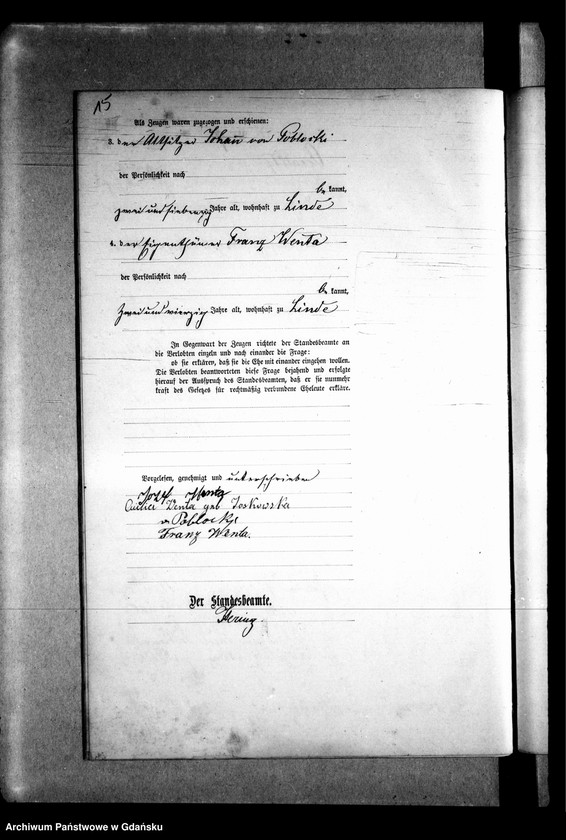 15
Als Zeugen waren zugezogen und erschienen:
3. der Altsitzer Johann von Poblocki
der Persönlichkeit nach
be kannt,
zwei und siebenzig Jahre alt, wohnhaft zu Linde
4. der Eigenthümer Franz Wenta
der Persönlichkeit nach
be kannt,
zwei und vierzig Jahre alt, wohnhaft zu Linde
In Gegenwart der Zeugen richtete der Standesbeamte an
die Verlobten einzeln und nach einander die Frage:
ob sie erklären, daß sie die Ehe mit einander eingehen wollen.
Die Verlobten beantworteten diese Frage bejahend und erfolgte
hierauf der Ausspruch des Standesbeamten, daß er sie nunmehr
kraft des Gesetzes für rechtmäßig verbundene Eheleute erkläre.
Vorgelesen, genehmigt und unterschrieben
Wenta
Wenta geb
v. Poblocki
Franz Wenta.
Der Standesbeamte.
Hering
Archiwum Państwowe w Gdańsku